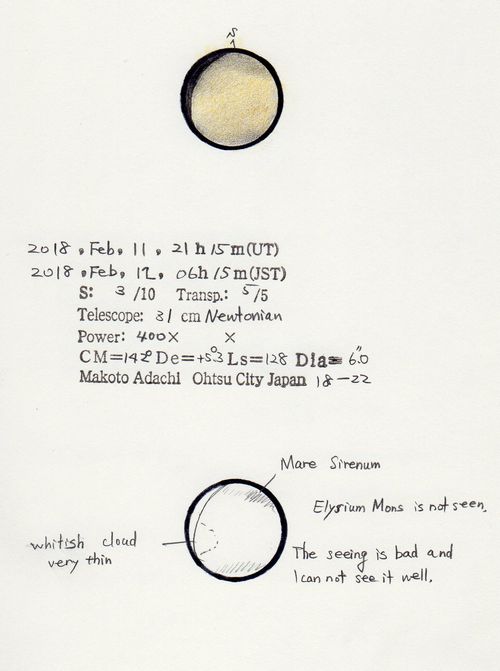 S
2018, Feb, 11, 21h 15m(UT)
2018, Feb, 12, 06h 15m(JST)
S: 3/10 Transp.: 5/5
Telescope: 31 cm Newtonian
Power: 400× ×
CM=142° De=+5.3° Ls=128 Dia= 6.0"
Makoto Adachi Ohtsu City Japan 18-22
Mare Sirenum
Elysium Mons is not seen.
whitish cloud
very thin
The seeing is bad and
I can not see it well.